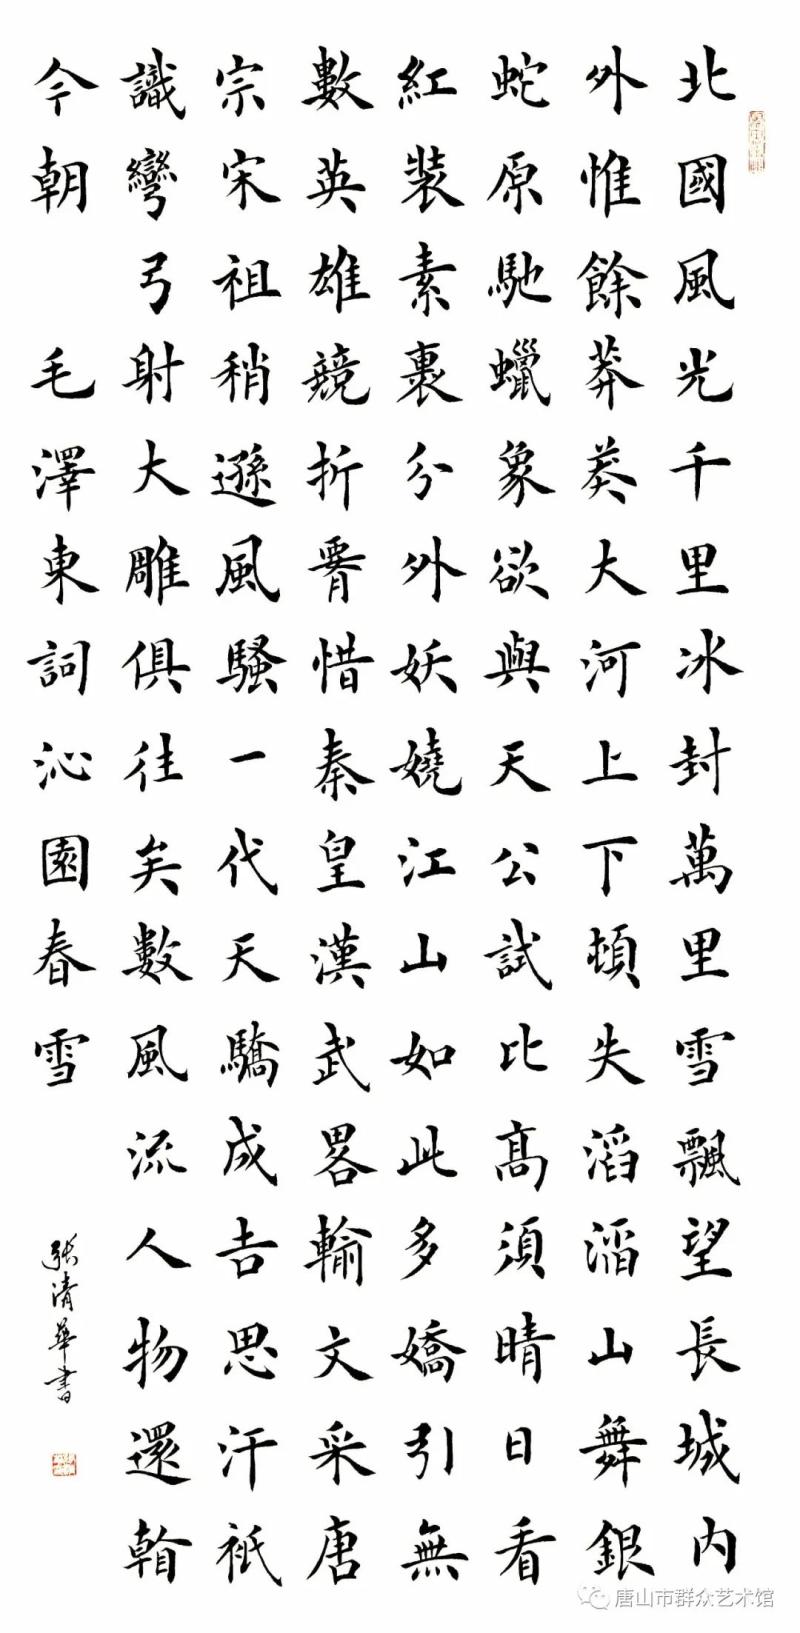 北國風光千里冰封萬里雪飄望長城内
外惟餘莽莽大河上下頓失滔滔山舞銀
蛇原馳蠟象欲與天公試比高須晴日看
紅裝素裹分外妖嬈江山如此多嬌引無
數英雄競折腰惜秦皇漢武畧輸文采唐
宗宋祖稍遜風騷一代天驕成吉思汗衹
識彎弓射大雕俱往矣數風流人物還看
今朝 毛澤東詞沁園春雪
張清華書
唐山市群众艺术馆